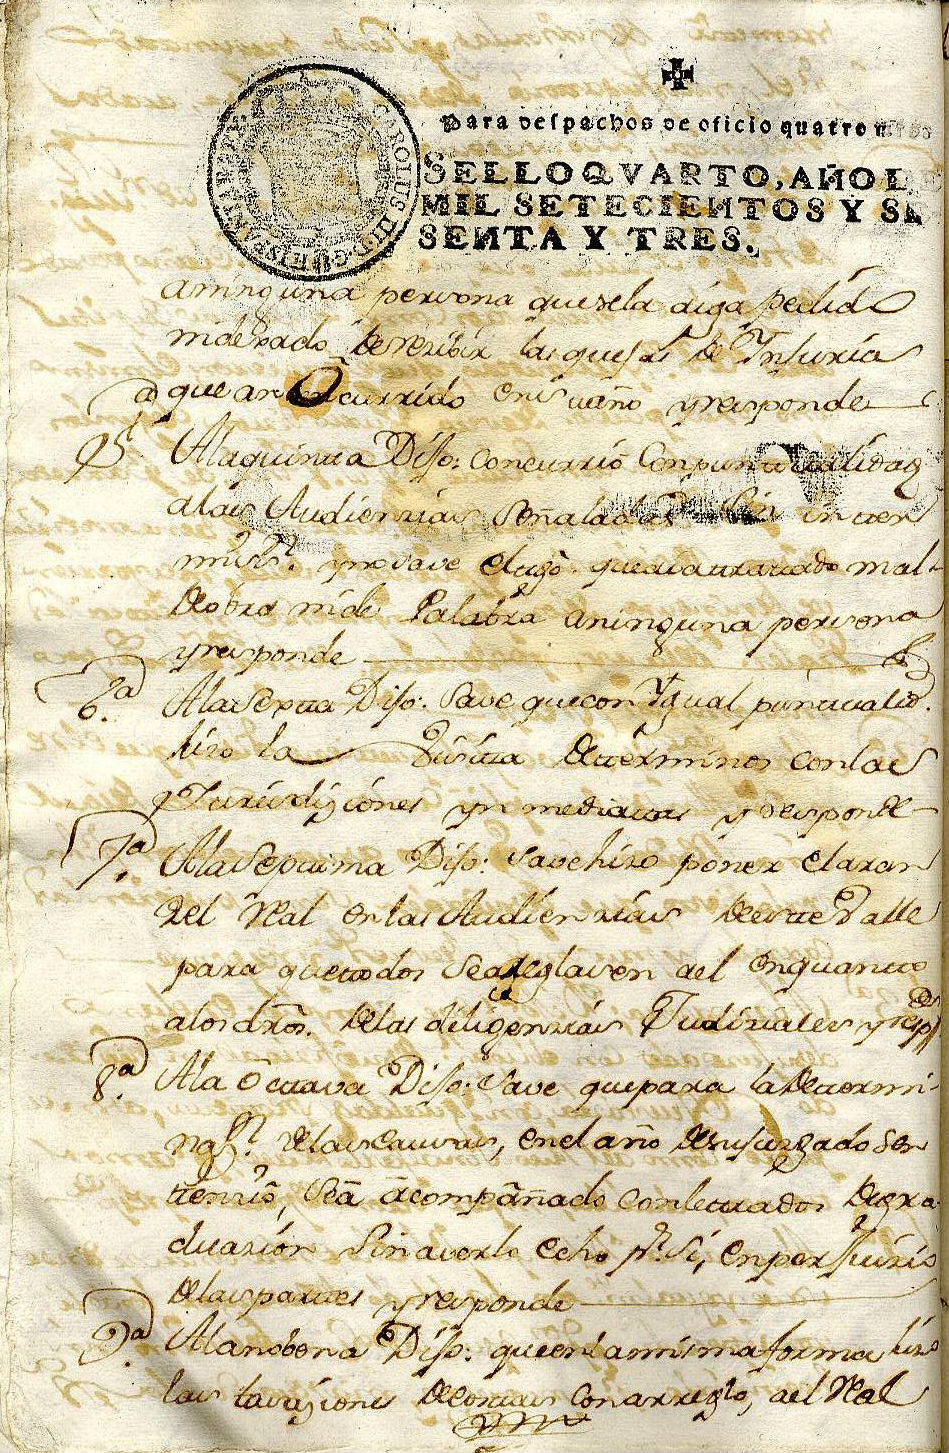 CAROLUS III D. G. HISPANIAR. REX
Para despachos de oficio quatro mrs
SELLO QVARTO, AÑO D
MIL SETECIENTOS Y SE
SENTA Y TRES.
aninguna persona que se la aiga pedido
nidexado de rezibir las quejas de Injuria
que an ocurrido en su año y responde
5ª
Ala quinta Dijo: concurrió con puntualidad
alas Audienzias señaladas sin inter
misn. y no save el tgo. que ava tratado mal
de obra ni de Palabra aninguna persona
y responde
6ª.
Ala sexta Dijo: save que con Ygual puntualid.
hizo la Visita de terminos con las
Jurisdiziones ynmediatas y responde
7ª.
Ala Septima Dijo: save hizo poner el aran
zel Real en las Audienzias de este Valle
para que todos se areglasen ael en quanto
alos dros. de las diligenzias Judiziales y respde
8ª.
Ala Octava Dijo: save que para la determi-
nazn. de las causas, en el año de su juzgado sen
tenzió, sea acompañado con letrados de gra
duazión sin averlo echo pr. si, en perjuizio
de las partes y responde
9ª.
Ala nobena Dijo: que en la misma forma hizo
las tasaziones de costas con arreglo, ael Real